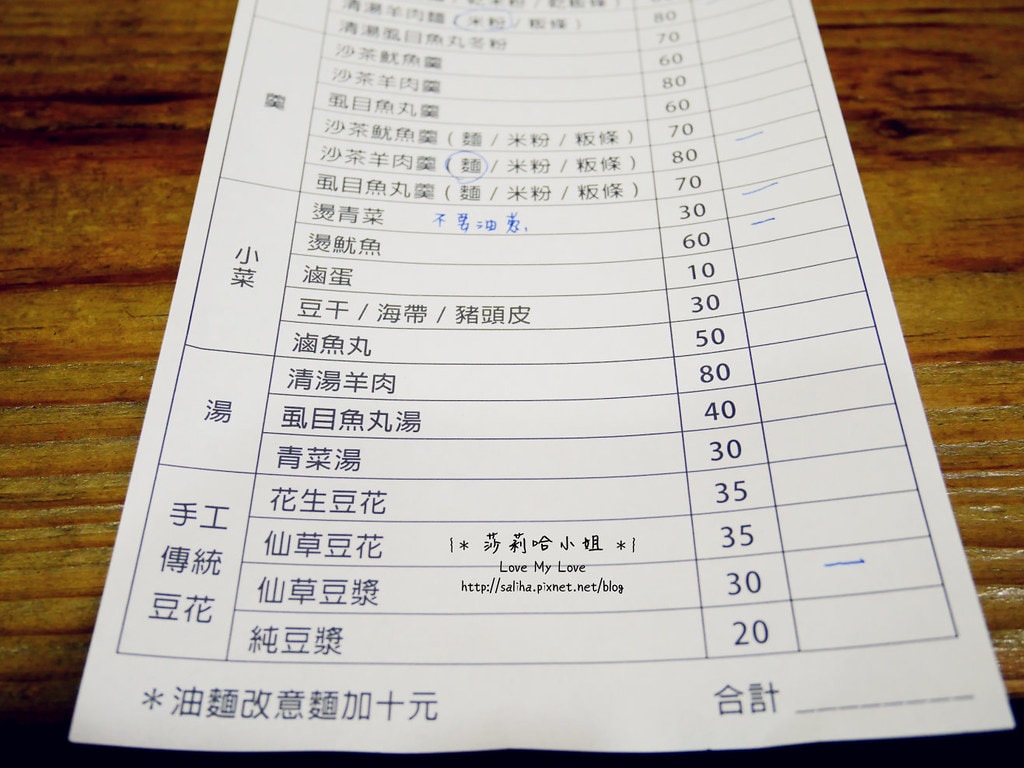 清湯羊肉麵（米粉 / 粄條） 80
清湯虱目魚丸冬粉 70
羹
沙茶魷魚羹 60
沙茶羊肉羹 80
虱目魚丸羹 60
沙茶魷魚羹（麵 / 米粉 / 粄條） 70
沙茶羊肉羹（麵 / 米粉 / 粄條） 80
虱目魚丸羹（麵 / 米粉 / 粄條） 70
小菜
燙青菜 不要油蔥 30
燙魷魚 60
滷蛋 10
豆干 / 海帶 / 豬頭皮 30
滷魚丸 50
湯
清湯羊肉 80
虱目魚丸湯 40
青菜湯 30
手工
傳統
豆花
花生豆花 35
仙草豆花 35
仙草豆漿 30
純豆漿 20
{* 莎莉哈小姐 *}
Love My Love
http://saliha.pixnet.net/blog
＊油麵改意麵加十元 合計